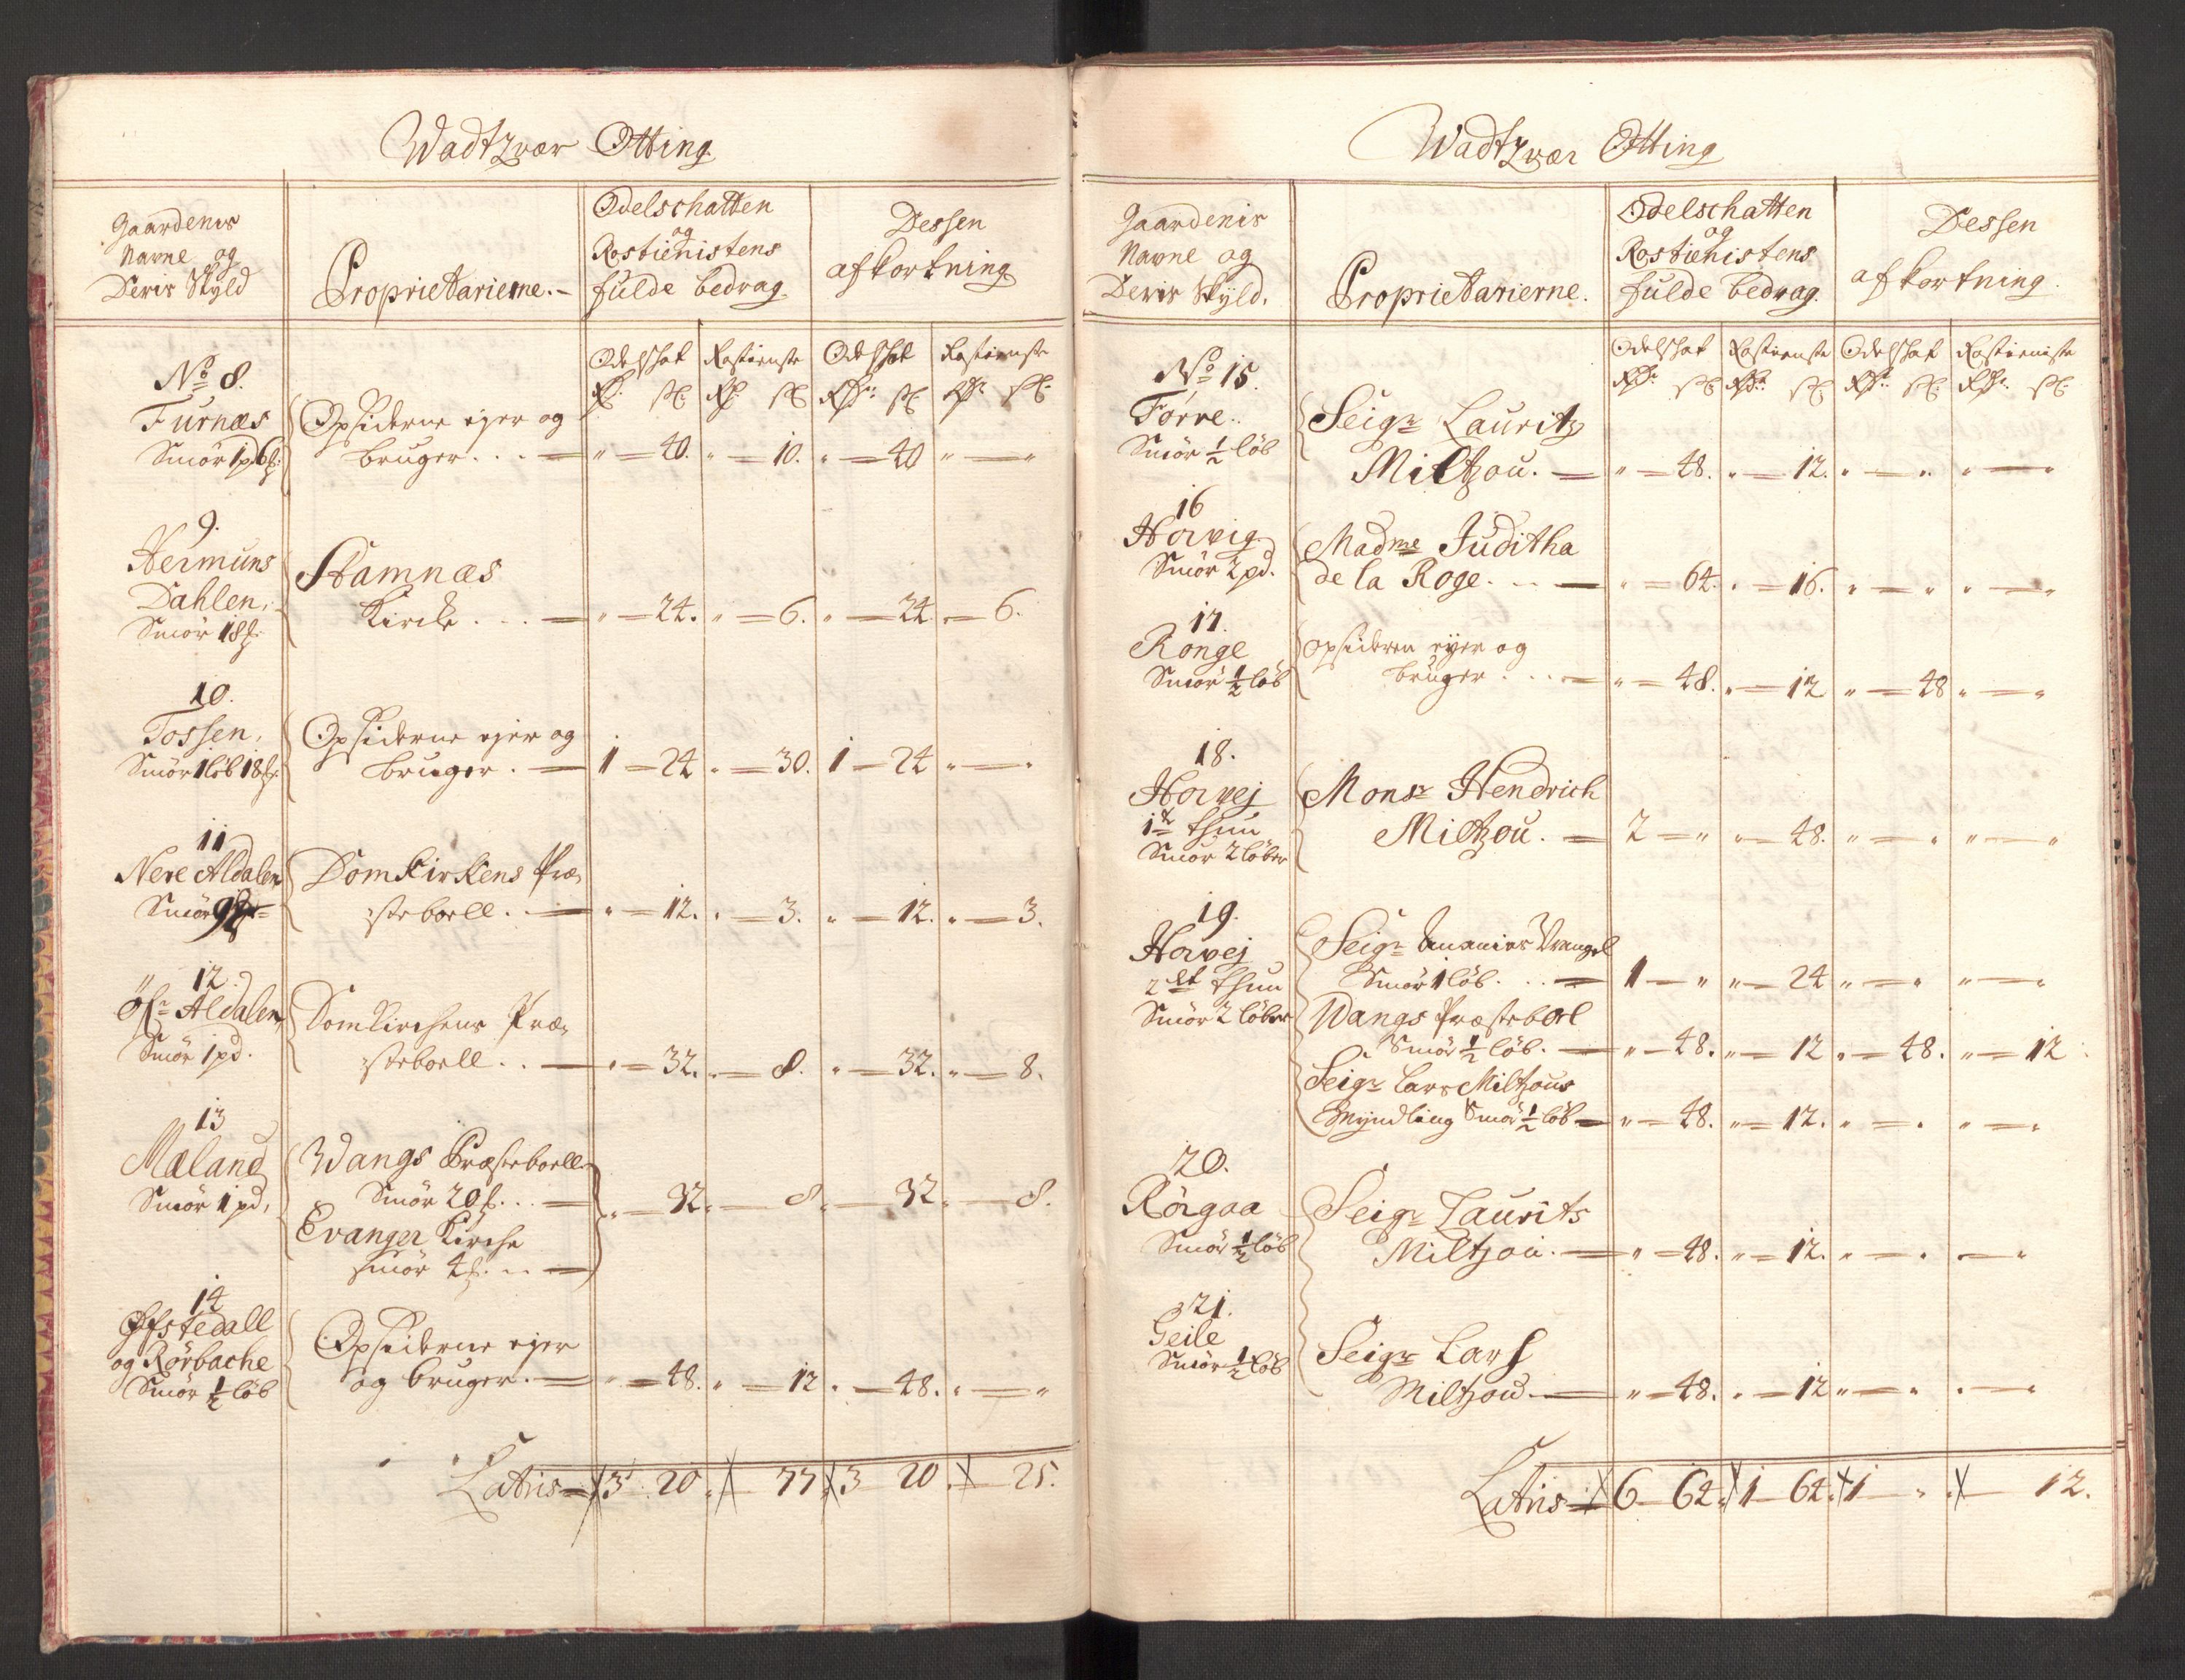 Wadtzvær Otting
Gaardenes Navne og Deris Skyld
Proprietarierne.
Odelschatten og Rostienistens fulde bedrag
Dessen afkortning
Odelskat Rostieniste Odelskat Rostieniste
No 8.
Furnæs
Smör 1 pd 6
Opsiderne ejer og
bruger. . . — " — 40. " — 10. " — 40 " — "
9.
Hermuns
Dahlen.
Smör 18
Stamnæs
Kirche . . . — " — 24. " — 6. " — 24. " — 6.
10.
Tossen.
Smör 1 löb 18
Opsiderne ejer og
bruger. — 1 — 24 " — 30. 1 — 24 " — "
11
Nere Aldalen
Smör 9
Domkirkens Præ-
steboell. . — " — 12. " — 3. " — 12. " — 3.
12.
Öfr Aldalen
Smör 1 pd.
Domkirchens Præ-
steboell. . — " — 32. " — 8. " — 32. " — 8.
13
Mæland
Smör 1 pd.
Wangs Præsteboell
Smör 20 . . —
Evanger Kirche
smör 4 . . —
" — 32. " — 8. " — 32. " — 8.
14
Øfstedall
og Rörbache
Smör 1/2 löb
Opsiderne ejer
og bruger. — " — 48. " — 12. " — 48. " — "
Latris 3 20. 77. 3 20. 25.
Wadtzvær Otting
Gaardenis Navne og Deris Skyld.
Proprietarierne.
Odelschatten og Rostienistens fulde bedrag.
Dessen afkortning.
Odelskat Rostieniste Odelskat Rostieniste
No 15.
Førre.
Smör 1/2 löb
Seigr Lauritz
Miltzou. — " — 48. " — 12. " — " " — "
16
Horvig
Smör 2 pd.
Madme Juditha
de la Roge. . . — " — 64. " — 16. " — " " — "
17.
Ronge
Smör 1/2 löb
opsideren ejer og
bruger . . . — " — 48. " — 12 " — 48 " — "
18.
Horvej
1te thun
Smör 2 löber
Monsr Hendrich
Miltzou. — 2 — " " — 48. " — " " — "
19.
Horvej
2det thun
Smör 2 löber
Seigr Vrangel
Smör 1 löb. . . — 1 — " " — 24 " — " " — "
Wangs Præsteboel
Smör 1/2 löb. — " — 48. " — 12 " — 48. " — 12
Seigr Lars Miltzous
Myndling Smör 1/2 löb — " — 48. " — 12. " — " " — "
20.
Rörgaa
Smör 1/2 löb
Seigr Laurits
Miltzou. — " — 48. " — 12. " — " " — "
21.
Geile
Smör 1/2 löb
Seigr Lars
Miltzou — " — 48. " — 12 " — " " — "
Latris 6 64. 1 64. 1 " 12.